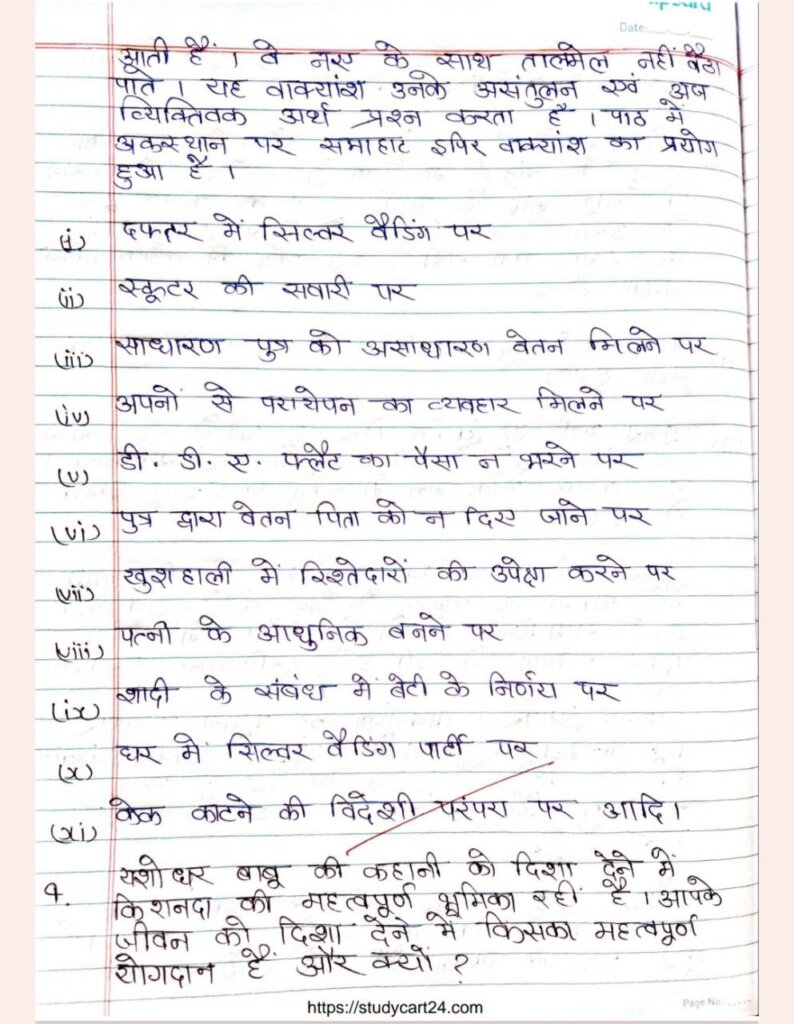 Date:
आती हैं । वे नए के साथ तालमेल नहीं बैठा
पाते । यह वाक्यांश उनके असंतुलन एवं अज
व्यिक्तिवक अर्थ प्रश्न करता है । पाठ में
अकस्थान पर समाहाट इपिर वाक्यांश का प्रयोग
हुआ है ।
(i) दफतर में सिल्वर वैडिंग पर
(ii) स्कूटर की सवारी पर
(iii) साधारण पुत्र को असाधारण वेतन मिलने पर
(iv) अपनों से परायेपन का व्यवहार मिलने पर
(v) डी. डी. ए. फ्लैट का पैसा न भरने पर
(vi) पुत्र द्वारा वेतन पिता को न दिए जाने पर
(vii) खुशहाली में रिश्तेदारों की उपेक्षा करने पर
(viii) पत्नी के आधुनिक बनने पर
(ix) शादी के संबंध में बेटी के निर्णय पर
(x) घर में सिल्वर वैडिंग पार्टी पर
(xi) केक काटने की विदेशी परंपरा पर आदि।
यशोधर बाबू की कहानी को दिशा देने में
9. किशनदा की महत्वपूर्ण भूमिका रहीं है । आपके
जीवन को दिशा देने में किसका महत्वपूर्ण
योगदान हैं और क्यों ?
https://studycart24.com
Page No.: